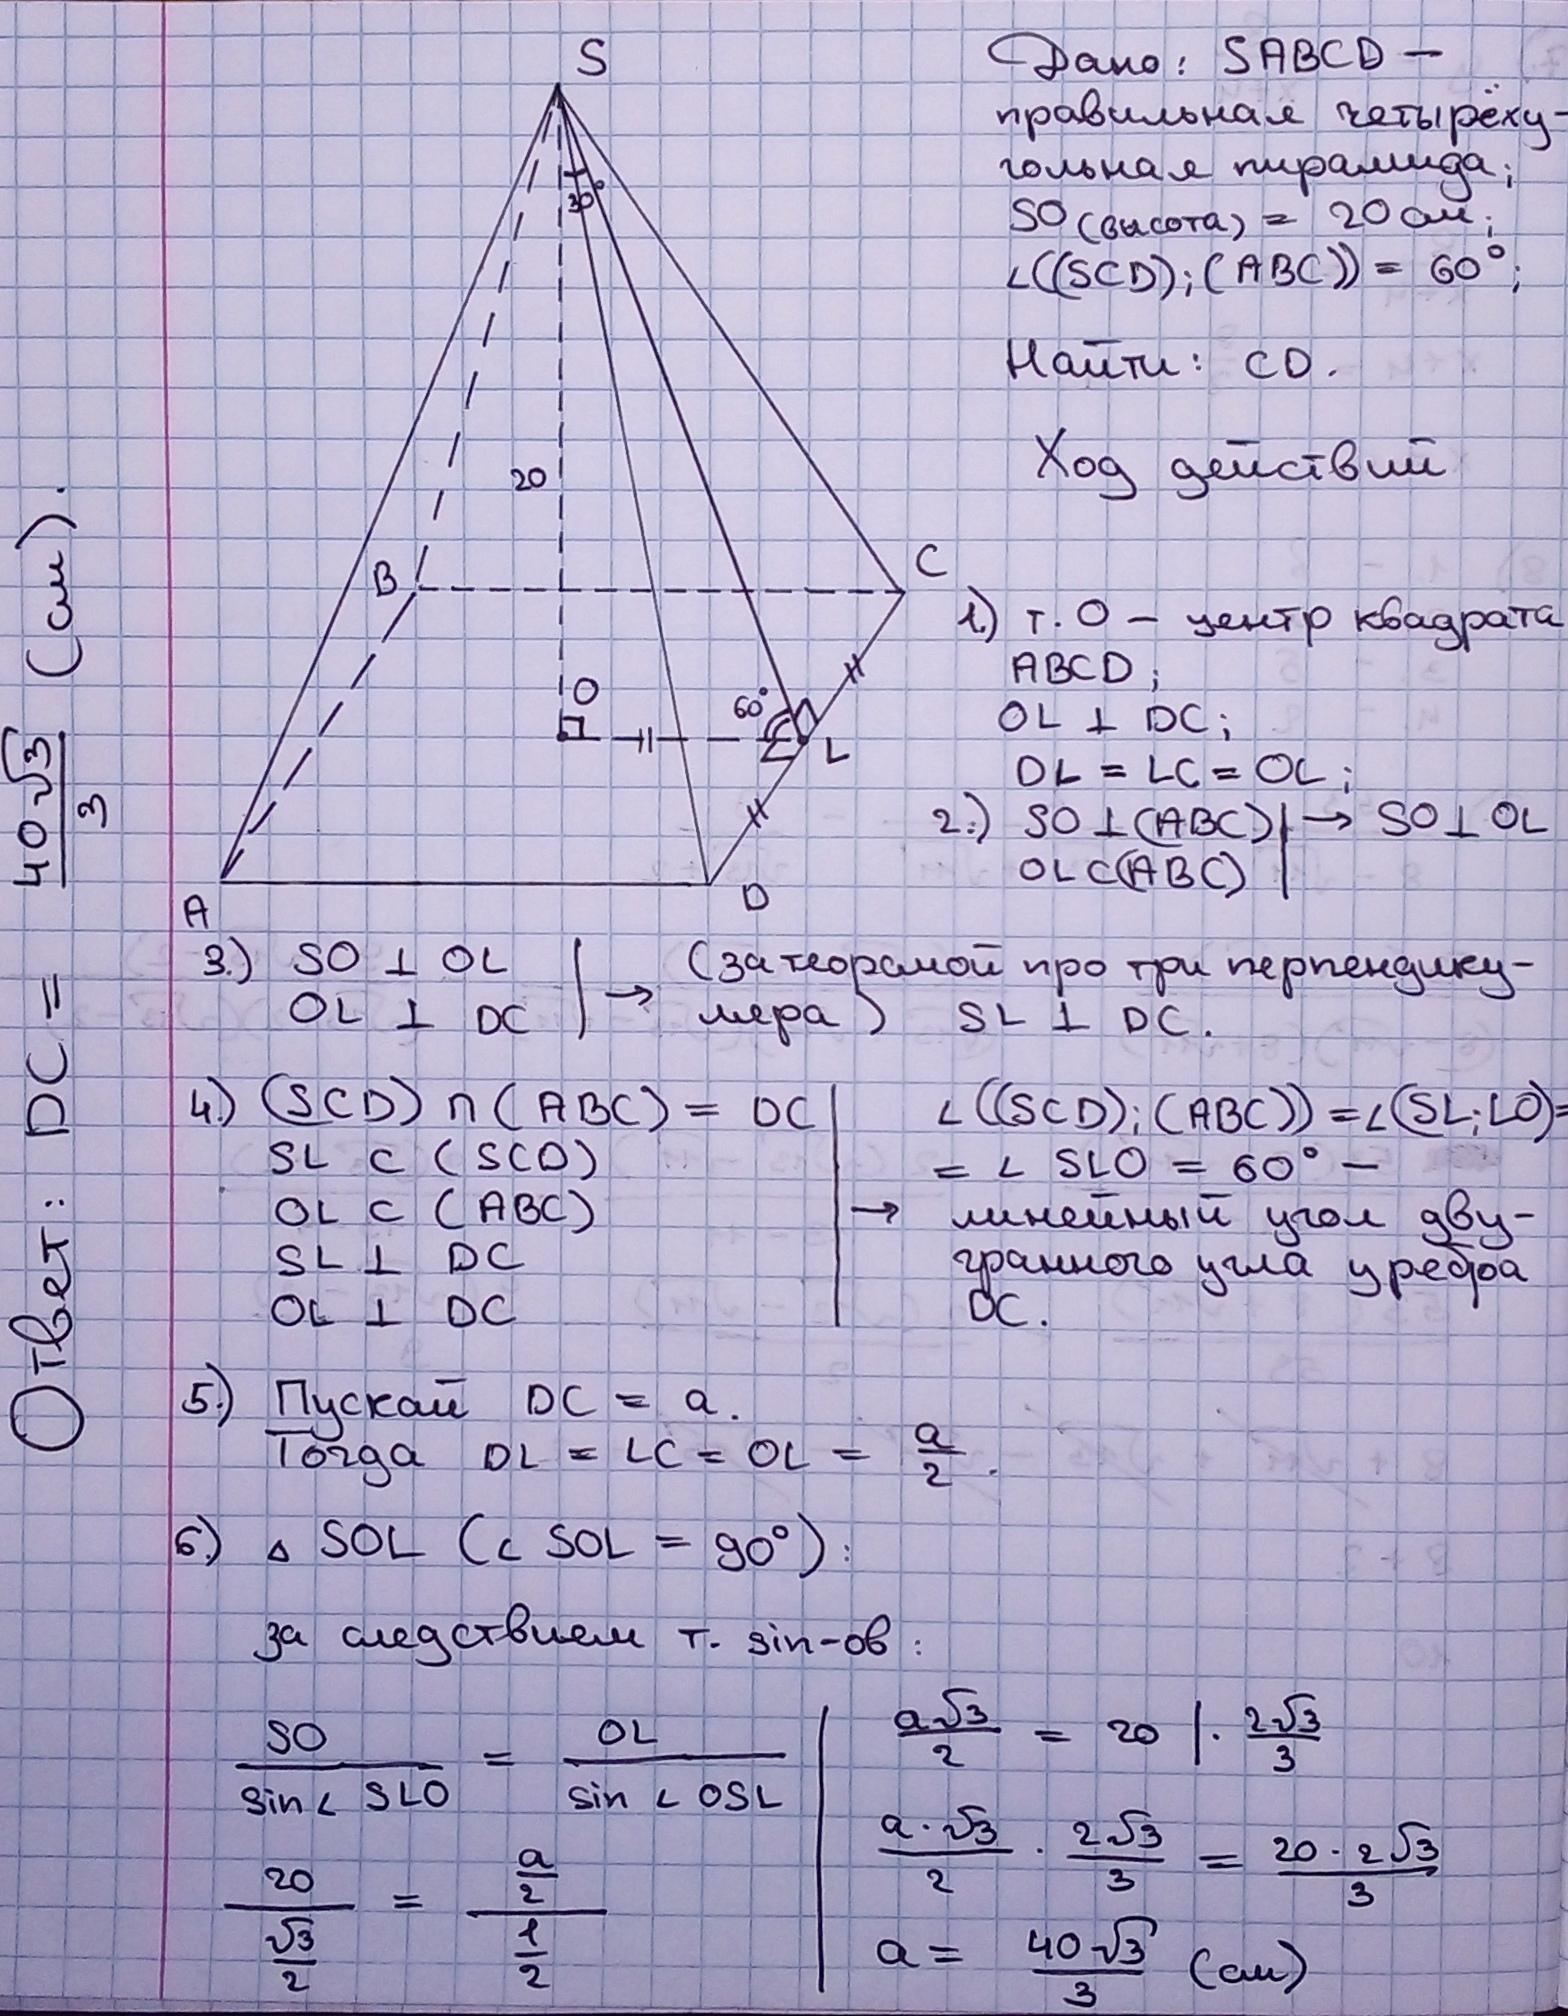 S
30°
20
B
C
O
60°
L
A
D
Дано: SABCD —
правильная четырёху-
гольная пирамида;
SO (высота) = 20 см;
∠((SCD);(ABC)) = 60°;
Найти: CD.
Ход действий
1.) т. O — центр квадрата
ABCD;
OL ⊥ DC;
DL = LC = OL;
2.) SO ⊥ (ABC) | → SO ⊥ OL
OL ⊂ (ABC)
3.) SO ⊥ OL | → (за теорамой про три перпендику-
OL ⊥ DC | ляра) SL ⊥ DC.
4.) (SCD) ∩ (ABC) = DC | ∠((SCD);(ABC)) = ∠(SL;LO) =
SL ⊂ (SCD) | = ∠ SLO = 60° —
OL ⊂ (ABC) | → линейный угол дву-
SL ⊥ DC | гранного угла у ребра
OL ⊥ DC | DC.
5.) Пускай DC = a.
Тогда DL = LC = OL = a/2.
6.) △ SOL (∠ SOL = 90°):
за следствием т. sin-ов:
SO / sin∠ SLO = OL / sin ∠ OSL
20 / (√3/2) = (a/2) / (1/2)
a√3/2 = 20 | · 2√3/3
a·√3/2 · 2√3/3 = 20·2√3/3
a = 40√3/3 (см)
Ответ: DC = 40√3/3 (см).